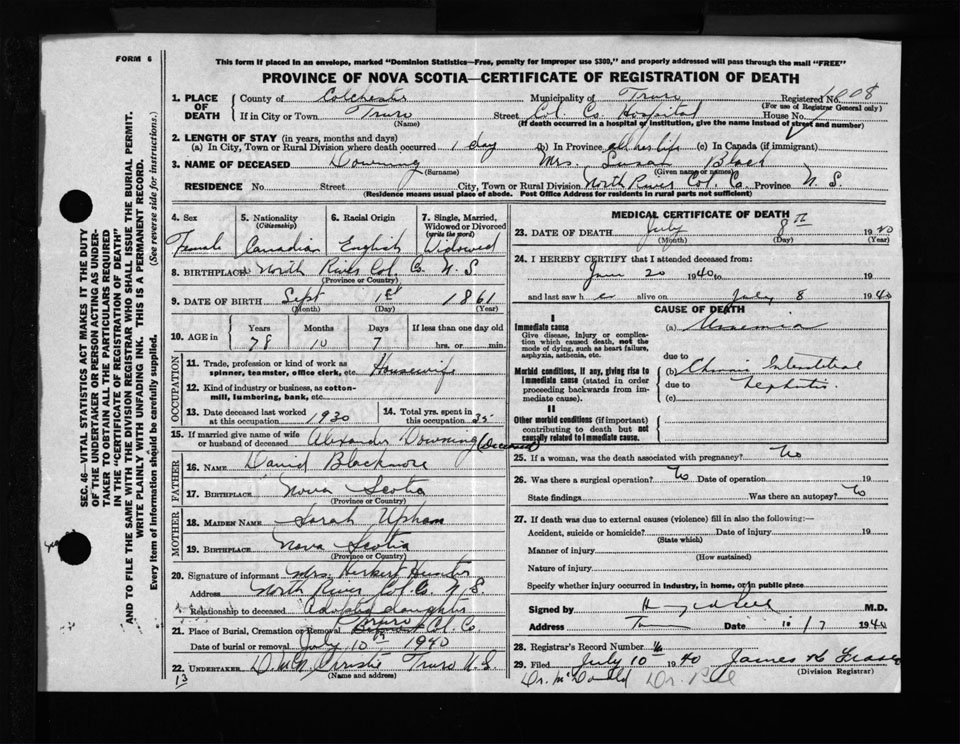 FORM 6
This form if placed in an envelope, marked "Dominion Statistics—Free, penalty for improper use $300," and properly addressed will pass through the mail "FREE"
PROVINCE OF NOVA SCOTIA—CERTIFICATE OF REGISTRATION OF DEATH
1. PLACE OF DEATH
County of Colchester Municipality of Truro Registered No. 008
(For use of Registrar General only)
If in City or Town Truro Street Col. Co. Hospital House No.
(Name) (If death occurred in a hospital or institution, give the name instead of street and number)
2. LENGTH OF STAY (in years, months and days)
(a) In City, Town or Rural Division where death occurred 1 day (b) In Province all her life (c) In Canada (if immigrant)
3. NAME OF DECEASED Downing Mrs. Susan Black
(Surname) (Given name or names)
RESIDENCE No. Street City, Town or Rural Division North River Col. Co. Province N. S.
(Residence means usual place of abode. Post Office Address for residents in rural parts not sufficient)
4. Sex Female
5. Nationality (Citizenship) Canadian
6. Racial Origin English
7. Single, Married, Widowed or Divorced (write the word) Widowed
8. BIRTHPLACE North River Col. Co. N. S.
(Province or Country)
9. DATE OF BIRTH Sept 1st 1861
(Month) (Day) (Year)
10. AGE in Years Months Days If less than one day old
78 10 7 hrs. or min.
OCCUPATION
11. Trade, profession or kind of work as spinner, teamster, office clerk, etc. Housewife
12. Kind of industry or business, as cotton-mill, lumbering, bank, etc.
13. Date deceased last worked at this occupation 1930
14. Total yrs. spent in this occupation 35
15. If married give name of wife or husband of deceased Alexander Downing (Deceased)
FATHER
16. NAME David Blackmore
17. BIRTHPLACE Nova Scotia
(Province or Country)
MOTHER
18. MAIDEN NAME Sarah Upham
19. BIRTHPLACE Nova Scotia
(Province or Country)
20. Signature of informant Mrs. Herbert Hunter
Address North River Col. Co. N. S.
Relationship to deceased Adopted daughter
21. Place of Burial, Cremation or Removal Truro Col. C.
Date of burial or removal July 10th 1940
22. UNDERTAKER Christie Truro N. S.
(Name and address)
13
MEDICAL CERTIFICATE OF DEATH
23. DATE OF DEATH July 8th 1940
(Month) (Day) (Year)
24. I HEREBY CERTIFY that I attended deceased from:
June 20 1940 to 19
and last saw h er alive on July 8 1940
CAUSE OF DEATH
I
Immediate cause
Give disease, injury or complication which caused death, not the mode of dying, such as heart failure, asphyxia, asthenia, etc.
(a) Uraemia
due to
Morbid conditions, if any, giving rise to immediate cause (stated in order proceeding backwards from immediate cause).
(b) Chronic Interstitial
due to Nephritis
(c)
II
Other morbid conditions (if important) contributing to death but not causally related to immediate cause.
25. If a woman, was the death associated with pregnancy? No
26. Was there a surgical operation? No Date of operation 19
State findings Was there an autopsy? No
27. If death was due to external causes (violence) fill in also the following:—
Accident, suicide or homicide? Date of injury 19
(State which)
Manner of injury
(How sustained)
Nature of injury
Specify whether injury occurred in industry, in home, or in public place
Signed by M.D.
Address Date 10/7 1940
28. Registrar's Record Number
29. Filed July 10 1940 James Fraser
(Division Registrar)
Dr. McDonald
SEC. 46—VITAL STATISTICS ACT MAKES IT THE DUTY
OF THE UNDERTAKER OR PERSON ACTING AS UNDER-
TAKER TO OBTAIN ALL THE PARTICULARS REQUIRED
IN THE "CERTIFICATE OF REGISTRATION OF DEATH"
AND TO FILE THE SAME WITH THE DIVISION REGISTRAR WHO SHALL ISSUE THE BURIAL PERMIT.
WRITE PLAINLY WITH UNFADING INK. THIS IS A PERMANENT RECORD.
Every item of information should be carefully supplied. (See reverse side for instructions.)